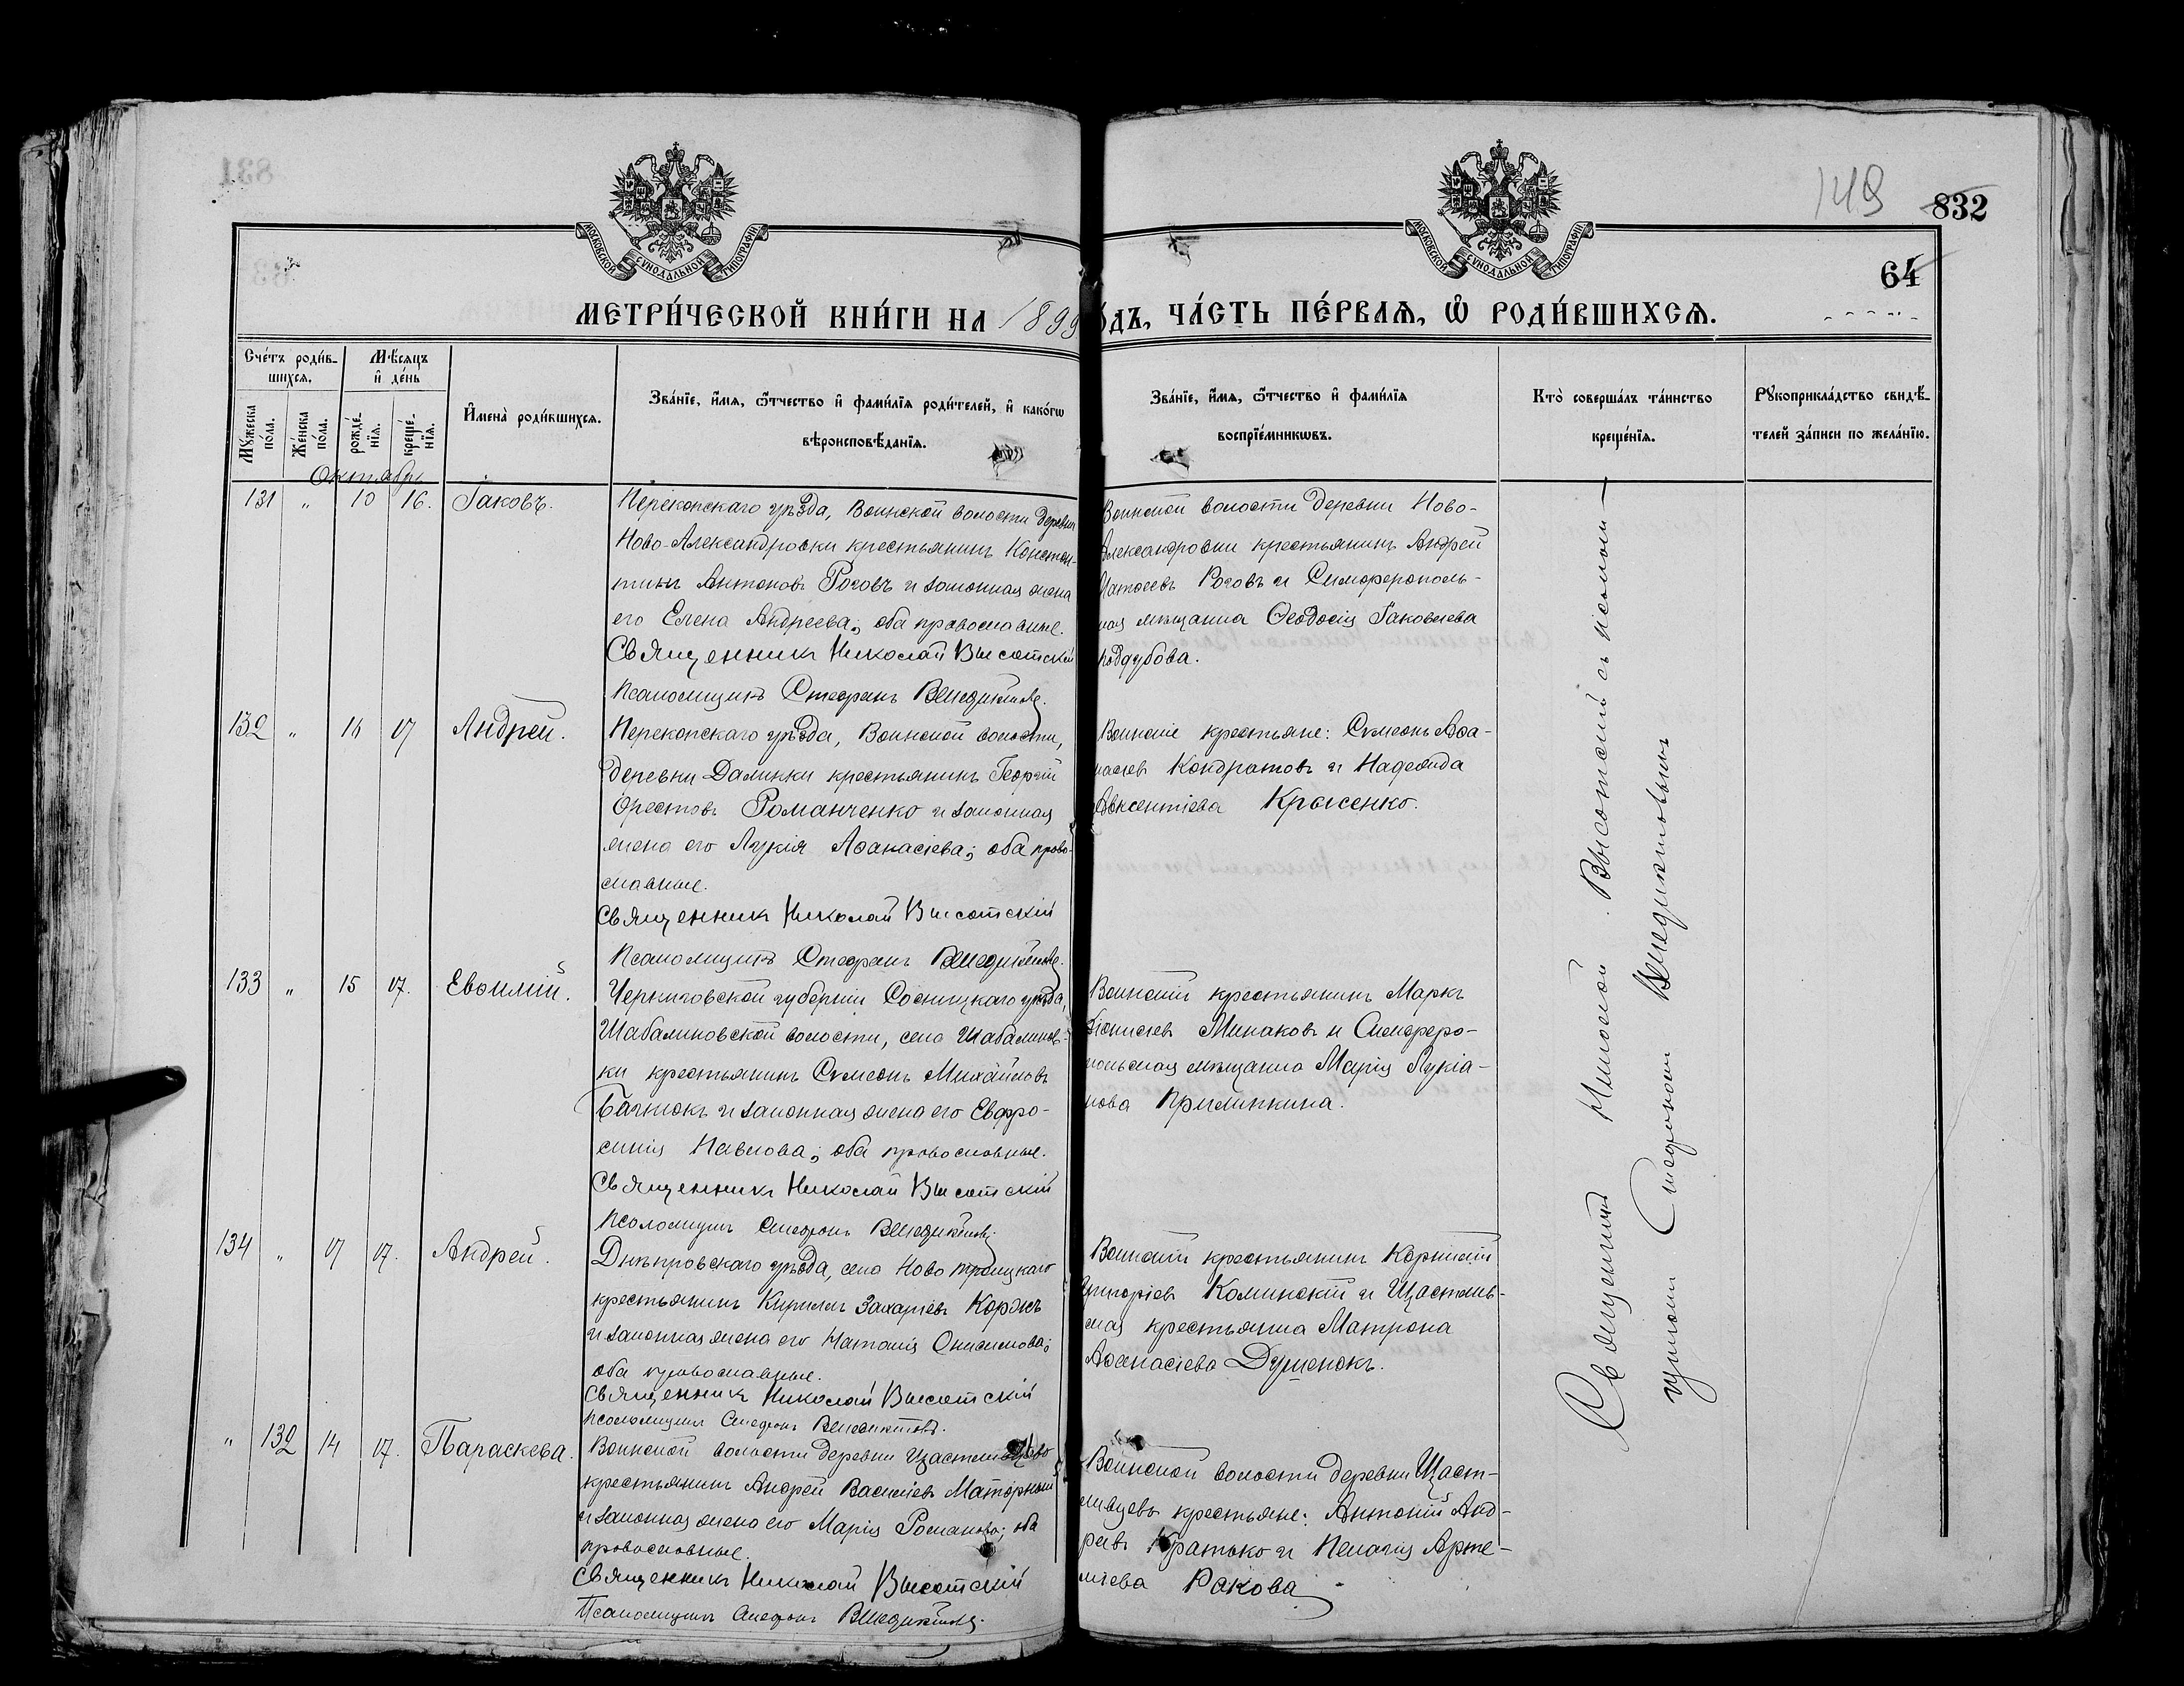 149 832
64
МОСКОВСКОЙ СУНОДАЛЬНОЙ ТИПОГРАФІИ
МОСКОВСКОЙ СУНОДАЛЬНОЙ ТИПОГРАФІИ
МЕТРИ́ЧЕСКОЙ КНИ́ГИ НА 1899 ГО́ДЪ, ЧА́СТЬ ПЕ́РВАѦ, Ѡ҆ РОДИ́ВШИХСѦ.
Сче́тъ роди́в-
шихсѧ.
Мꙋ́жеска по́ла.
Же́нска по́ла.
Мѣ́сѧцъ
и҆ де́нь
рожде́-
нїѧ.
креще́-
нїѧ.
И҆мена̀ роди́вшихсѧ.
Зва́нїе, и҆́мѧ, ѻ҆́тчество и҆ фами́лїѧ роди́телей, и҆ како́гѡ
вѣроисповѣ́данїѧ.
Зва́нїе, и҆́мѧ, ѻ҆́тчество и҆ фами́лїѧ
воспрїе́мникѡвъ.
Кто̀ соверша́лъ та́инство
креще́нїѧ.
Рꙋкоприкла́дство свидѣ́-
телей за́писи по жела́нїю.
Октябрь
131 " 10 16. Іаковъ.
Перекопскаго уѣзда, Воинской волости деревни
Ново-Александровки крестьянинъ Констан-
тинъ Антоновъ Роговъ и законная жена
его Елена Андреева; оба православные.
Священникъ Николай Высотскій
Псаломщикъ Стефанъ Венедиктовъ.
Воинской волости деревни Ново-
Александровки крестьянинъ Андрей
Роговъ и Симферополь-
ская мѣщанка Ѳеодосія Іаковлева
Поддубова.
132 " 16 17 Андрей.
Перекопскаго уѣзда, Воинской волости,
деревни Далинки крестьянинъ Георгій
Орестовъ Романченко и законная
жена его Лукія Аѳанасіева; оба право-
славные.
Священникъ Николай Высотскій
Псаломщикъ Стефанъ Венедиктовъ.
Воинскіе крестьяне: Сѵмеонъ Аѳа-
насіевъ Кондратовъ и Надежда
Авксентіева Крысенко.
133 " 15 17. Евѳимій.
Черниговской губерніи Сосницкаго уѣзда,
Шабалиновской волости, села Шабалинов-
ки крестьянинъ Сѵмеонъ Михайловъ
и законная жена его Евфро-
синія Павлова; оба православные.
Священникъ Николай Высотскій
Псаломщикъ Стефанъ Венедиктовъ.
Воинскій крестьянинъ Маркъ
Діонисіевъ Минаковъ и Симферо-
польская мѣщанка Марія Лукіа-
нова
134 " 17 17. Андрей.
Днѣпровскаго уѣзда, села Ново Троицкаго
крестьянинъ Кириллъ Захаріевъ Коржъ
и законная жена его Наталія Онисимова;
оба православные.
Священникъ Николай Высотскій
Псаломщикъ Стефанъ Венедиктовъ.
Воинскій крестьянинъ Корнилій
Григоріевъ Калинскій и Щастлив-
ская крестьянка Матрона
Аѳанасіева Душенокъ.
" 132 14 17. Параскева.
Воинской волости деревни Щастливцево
крестьянинъ Андрей Василіевъ Маторный
и законная жена его Марія Романова; оба
православные.
Священникъ Николай Высотскій
Псаломщикъ Стефанъ Венедиктовъ.
Воинской волости деревни Щаст-
ливцевъ крестьяне: Антоній Анд-
реевъ Кратько и Пелагія Арте-
міева Ракова
Священникъ Николай Высотскій съ псалом-
щикомъ Стефаномъ Венедиктовымъ